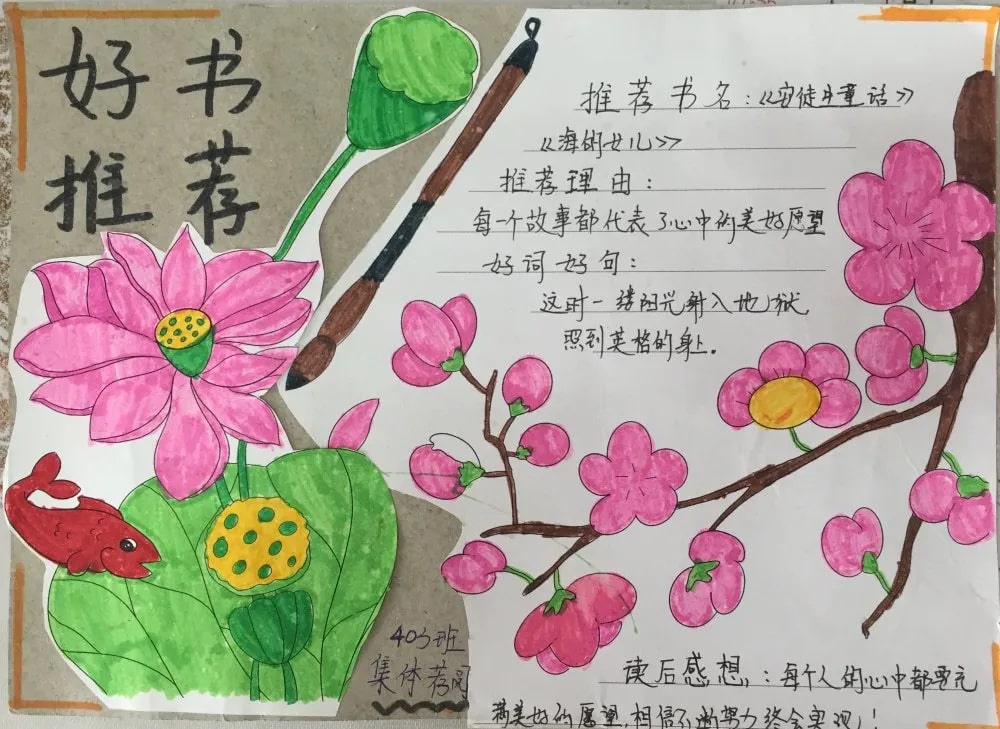 好书
推荐
推荐书名:《安徒生童话》
《海的女儿》
推荐理由:
每一个故事都代表了心中的美好愿望
好词好句:
这时一缕阳光射入地狱
照到英格的身上.
403班
集体荐阅
读后感想:每个人的心中都要充
满美好的愿望,相信不断努力终会实现!